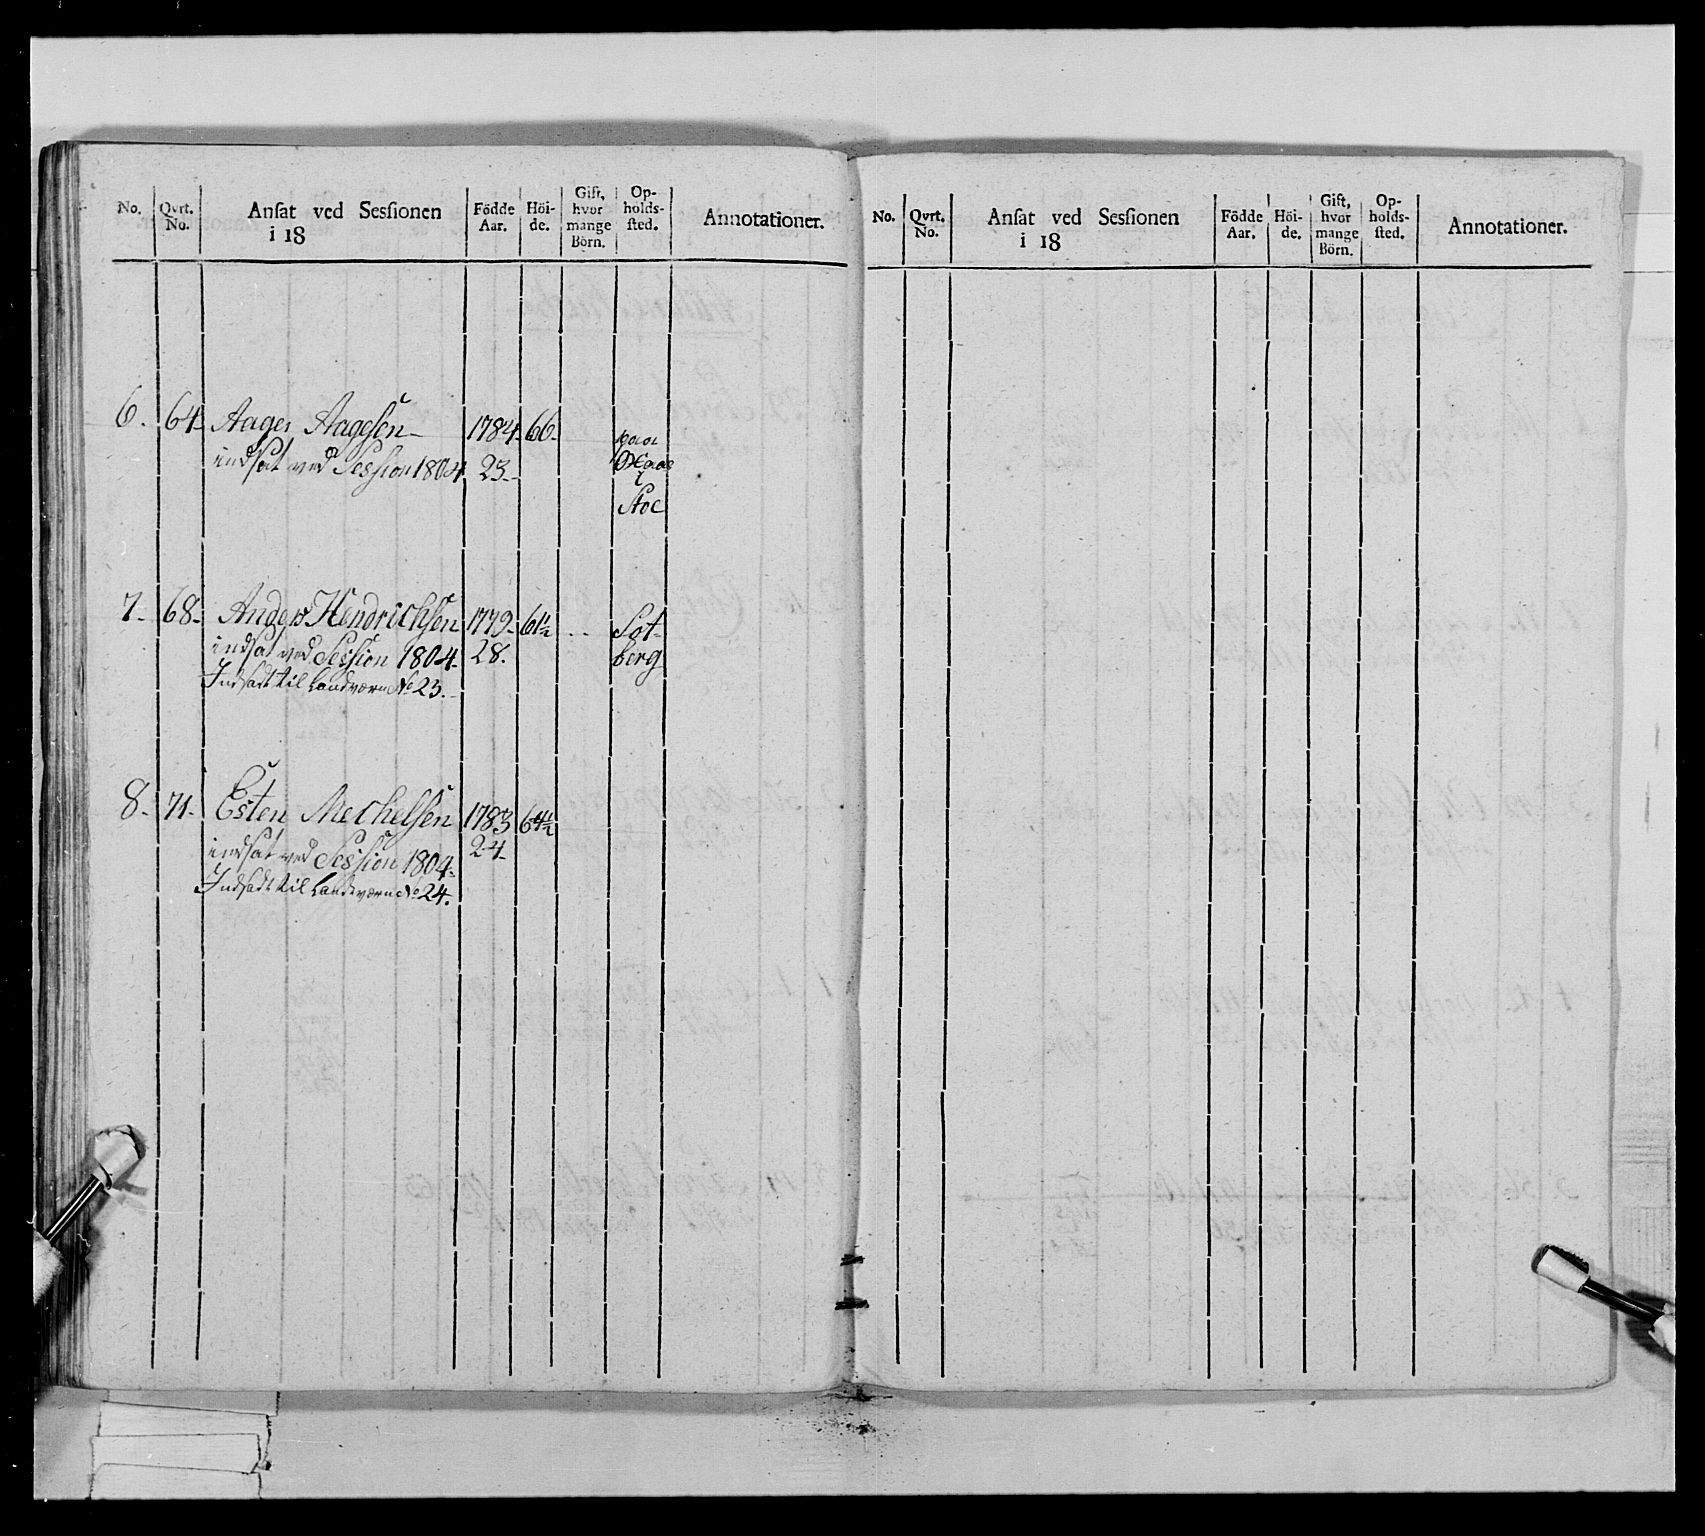 No. Qvrt. No. Ansat ved Sessionen i 18 Födde Aar. Höide. Gift, hvor mange Börn. Opholdssted. Annotationer.
6. 64. Aage Aagesen 1784. 66.
indsat ved Session 1804 23.
Stoe
7. 68. Anders Hendrichsen 1779. 61½ Sot-
indsat ved Session 1804. 28. berg
Indsadt til Landværn No 23.
8. 71. Esten Mechelsen 1783 64½
indsat ved Session 1804. 24.
Indsadt til Landeværn No 24.
No. Qvrt. No. Ansat ved Sessionen i 18 Födde Aar. Höide. Gift, hvor mange Börn. Opholdssted. Annotationer.